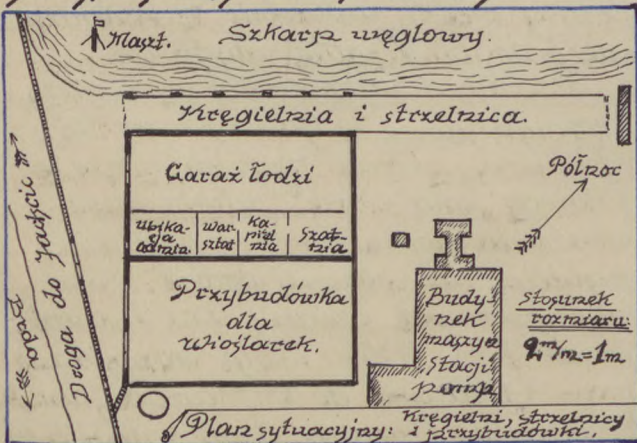 Maszt.
Szkarp węglowy.
Kręgielnia i strzelnica.
Garaż łodzi
Północ
ubika-
cja
admin.
war-
sztat
Ką-
piel
nia
Szat-
nia
Droga do
Przybudówka
dla
wioślarek.
Budy-
nek
maszyn
stacji
pomp
stosunek
rozmiaru:
2 m/m = 1m
Plan sytuacyjny:
Kręgielni, strzelnicy
i przybudówki.